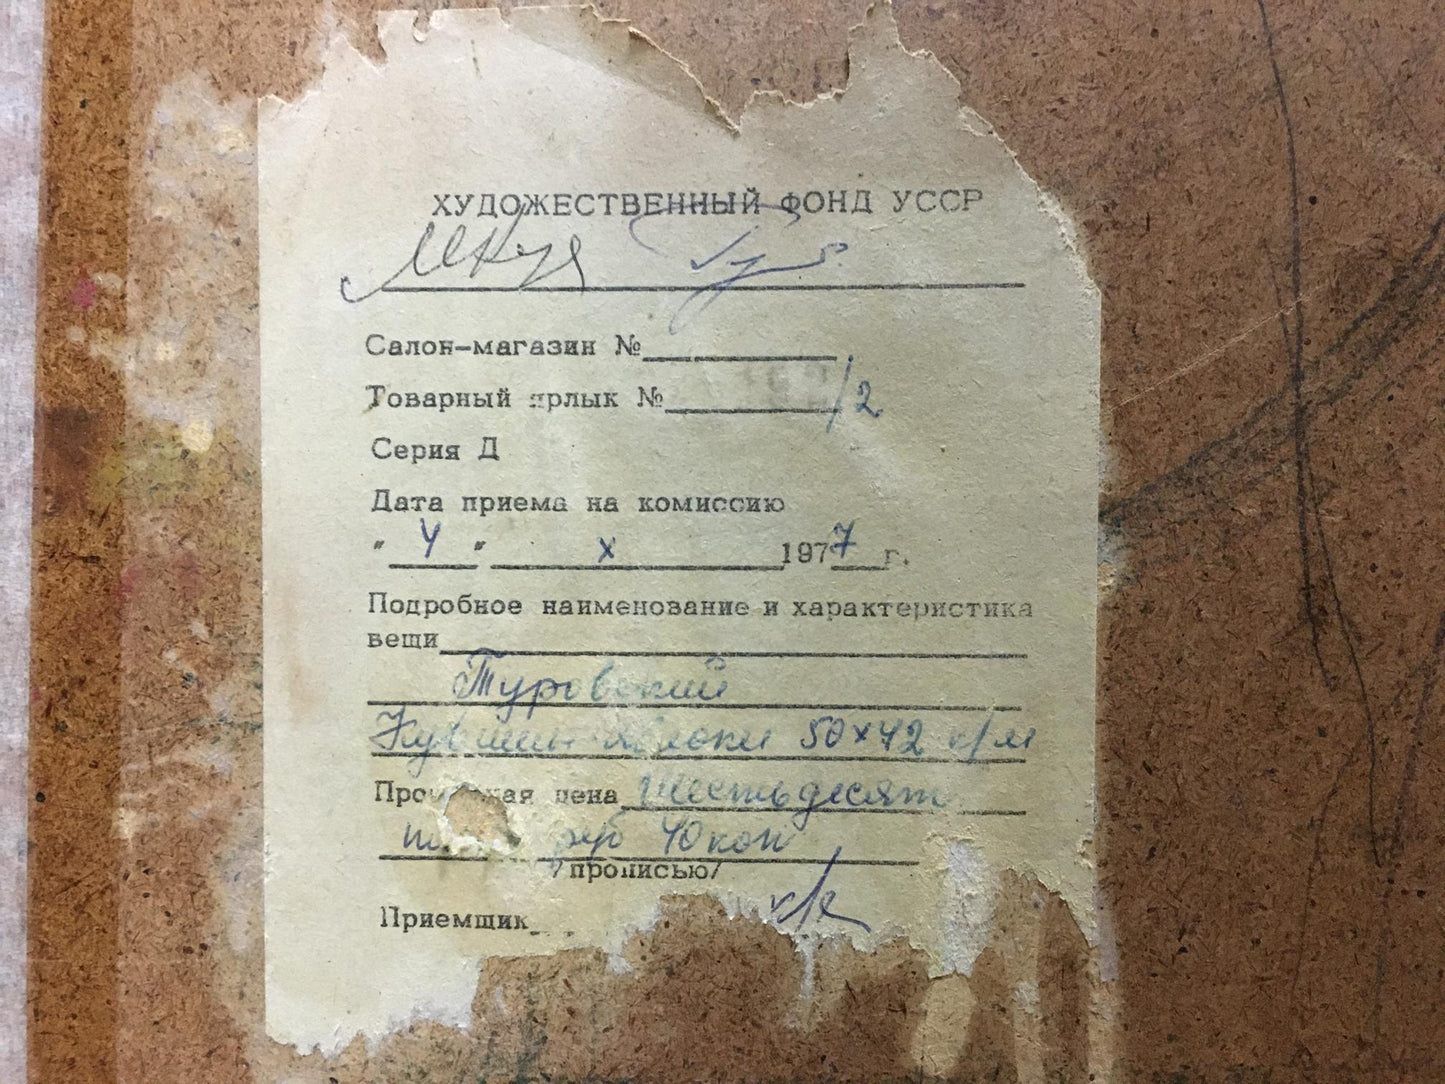 ХУДОЖЕСТВЕННЫЙ ФОНД УССР
Салон-магазин №
Товарный ярлык № /2
Серия Д
Дата приема на комиссию
" 4 " X 1977 г.
Подробное наименование и характеристика
вещи
Туровский
Кувшин яблоки 50x42 к/м
цена шестьдесят
руб 40 коп
/прописью/
Приемщик